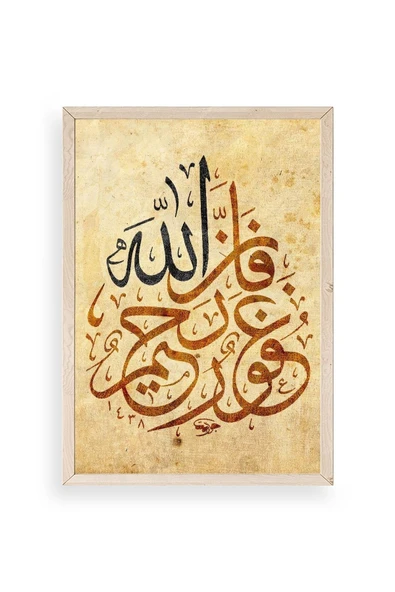 فإن الله
غفور رحيم
١٤٣٨